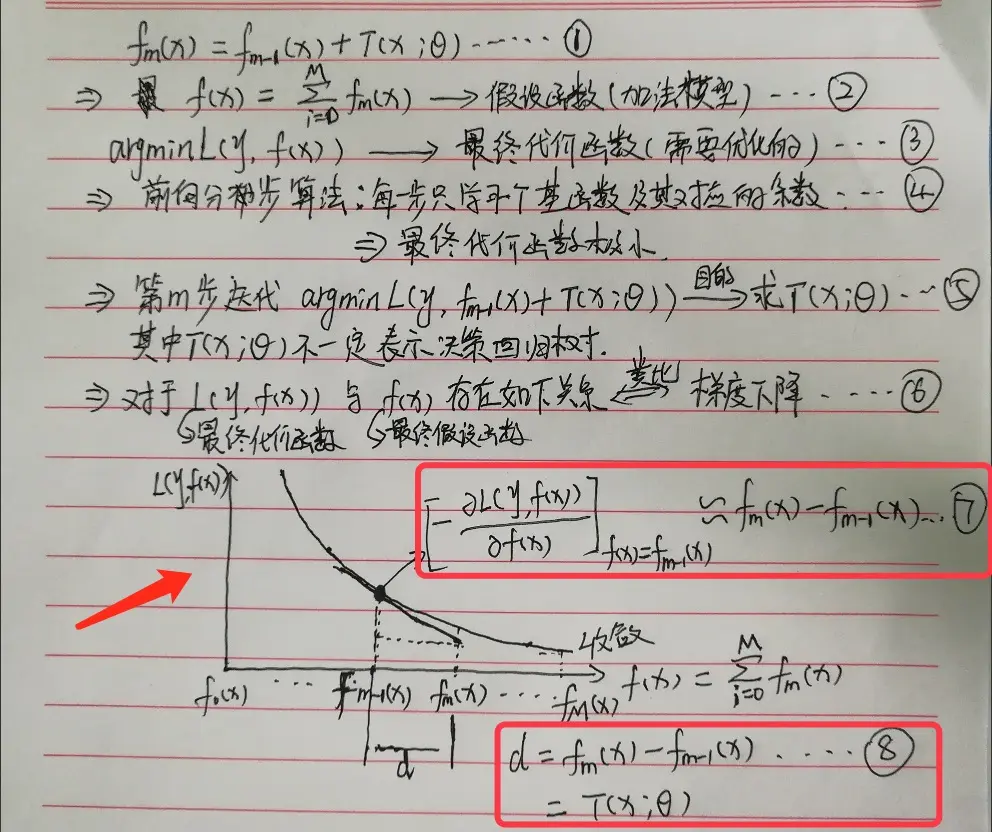 fm(x) = fm-1(x) + T(x;θ) ······ ①
⇒ f(x) = Σ(i=0→M) fm(x) → 假设函数(加法模型) ··· ②
argmin L(y, f(x)) → 最终代价函数(需要优化的) ··· ③
⇒ 前向分步算法:每步只学习一个基函数及其对应的系数 ··· ④
⇒ 最终代价函数极小.
⇒ 第m步迭代 argmin L(y, fm-1(x) + T(x;θ)) 目的→ 求T(x;θ) ·· ⑤
其中T(x;θ)不一定表示决策回归树.
⇒ 对于 L(y, f(x)) 与 f(x) 存在如下关系 类比 梯度下降 ····· ⑥
↳最终代价函数 ↳最终假设函数
L(y,f(x))
[- ∂L(y,f(x)) / ∂f(x)] f(x)=fm-1(x) ≈ fm(x) - fm-1(x) ··· ⑦
收敛
f0(x) ···· fm-1(x) fm(x) ····· fM(x) f(x) = Σ(i=0→M) fm(x)
d
d = fm(x) - fm-1(x) ····· ⑧
= T(x;θ)